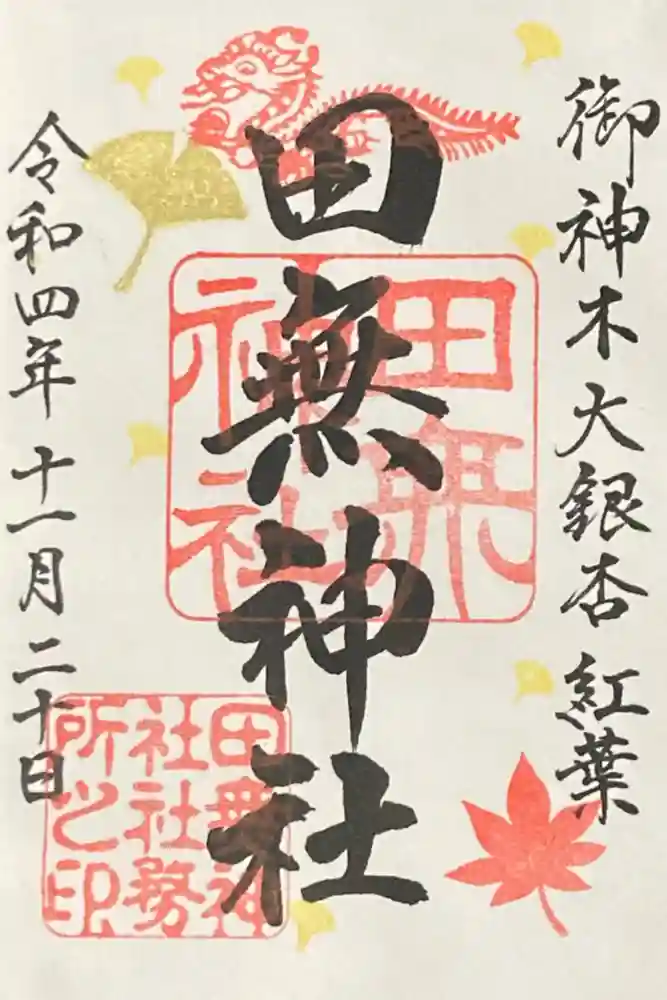 御神木大銀杏 紅葉
田無神社
田無
神社
令和四年十一月二十日
田無神
社社務
所之印